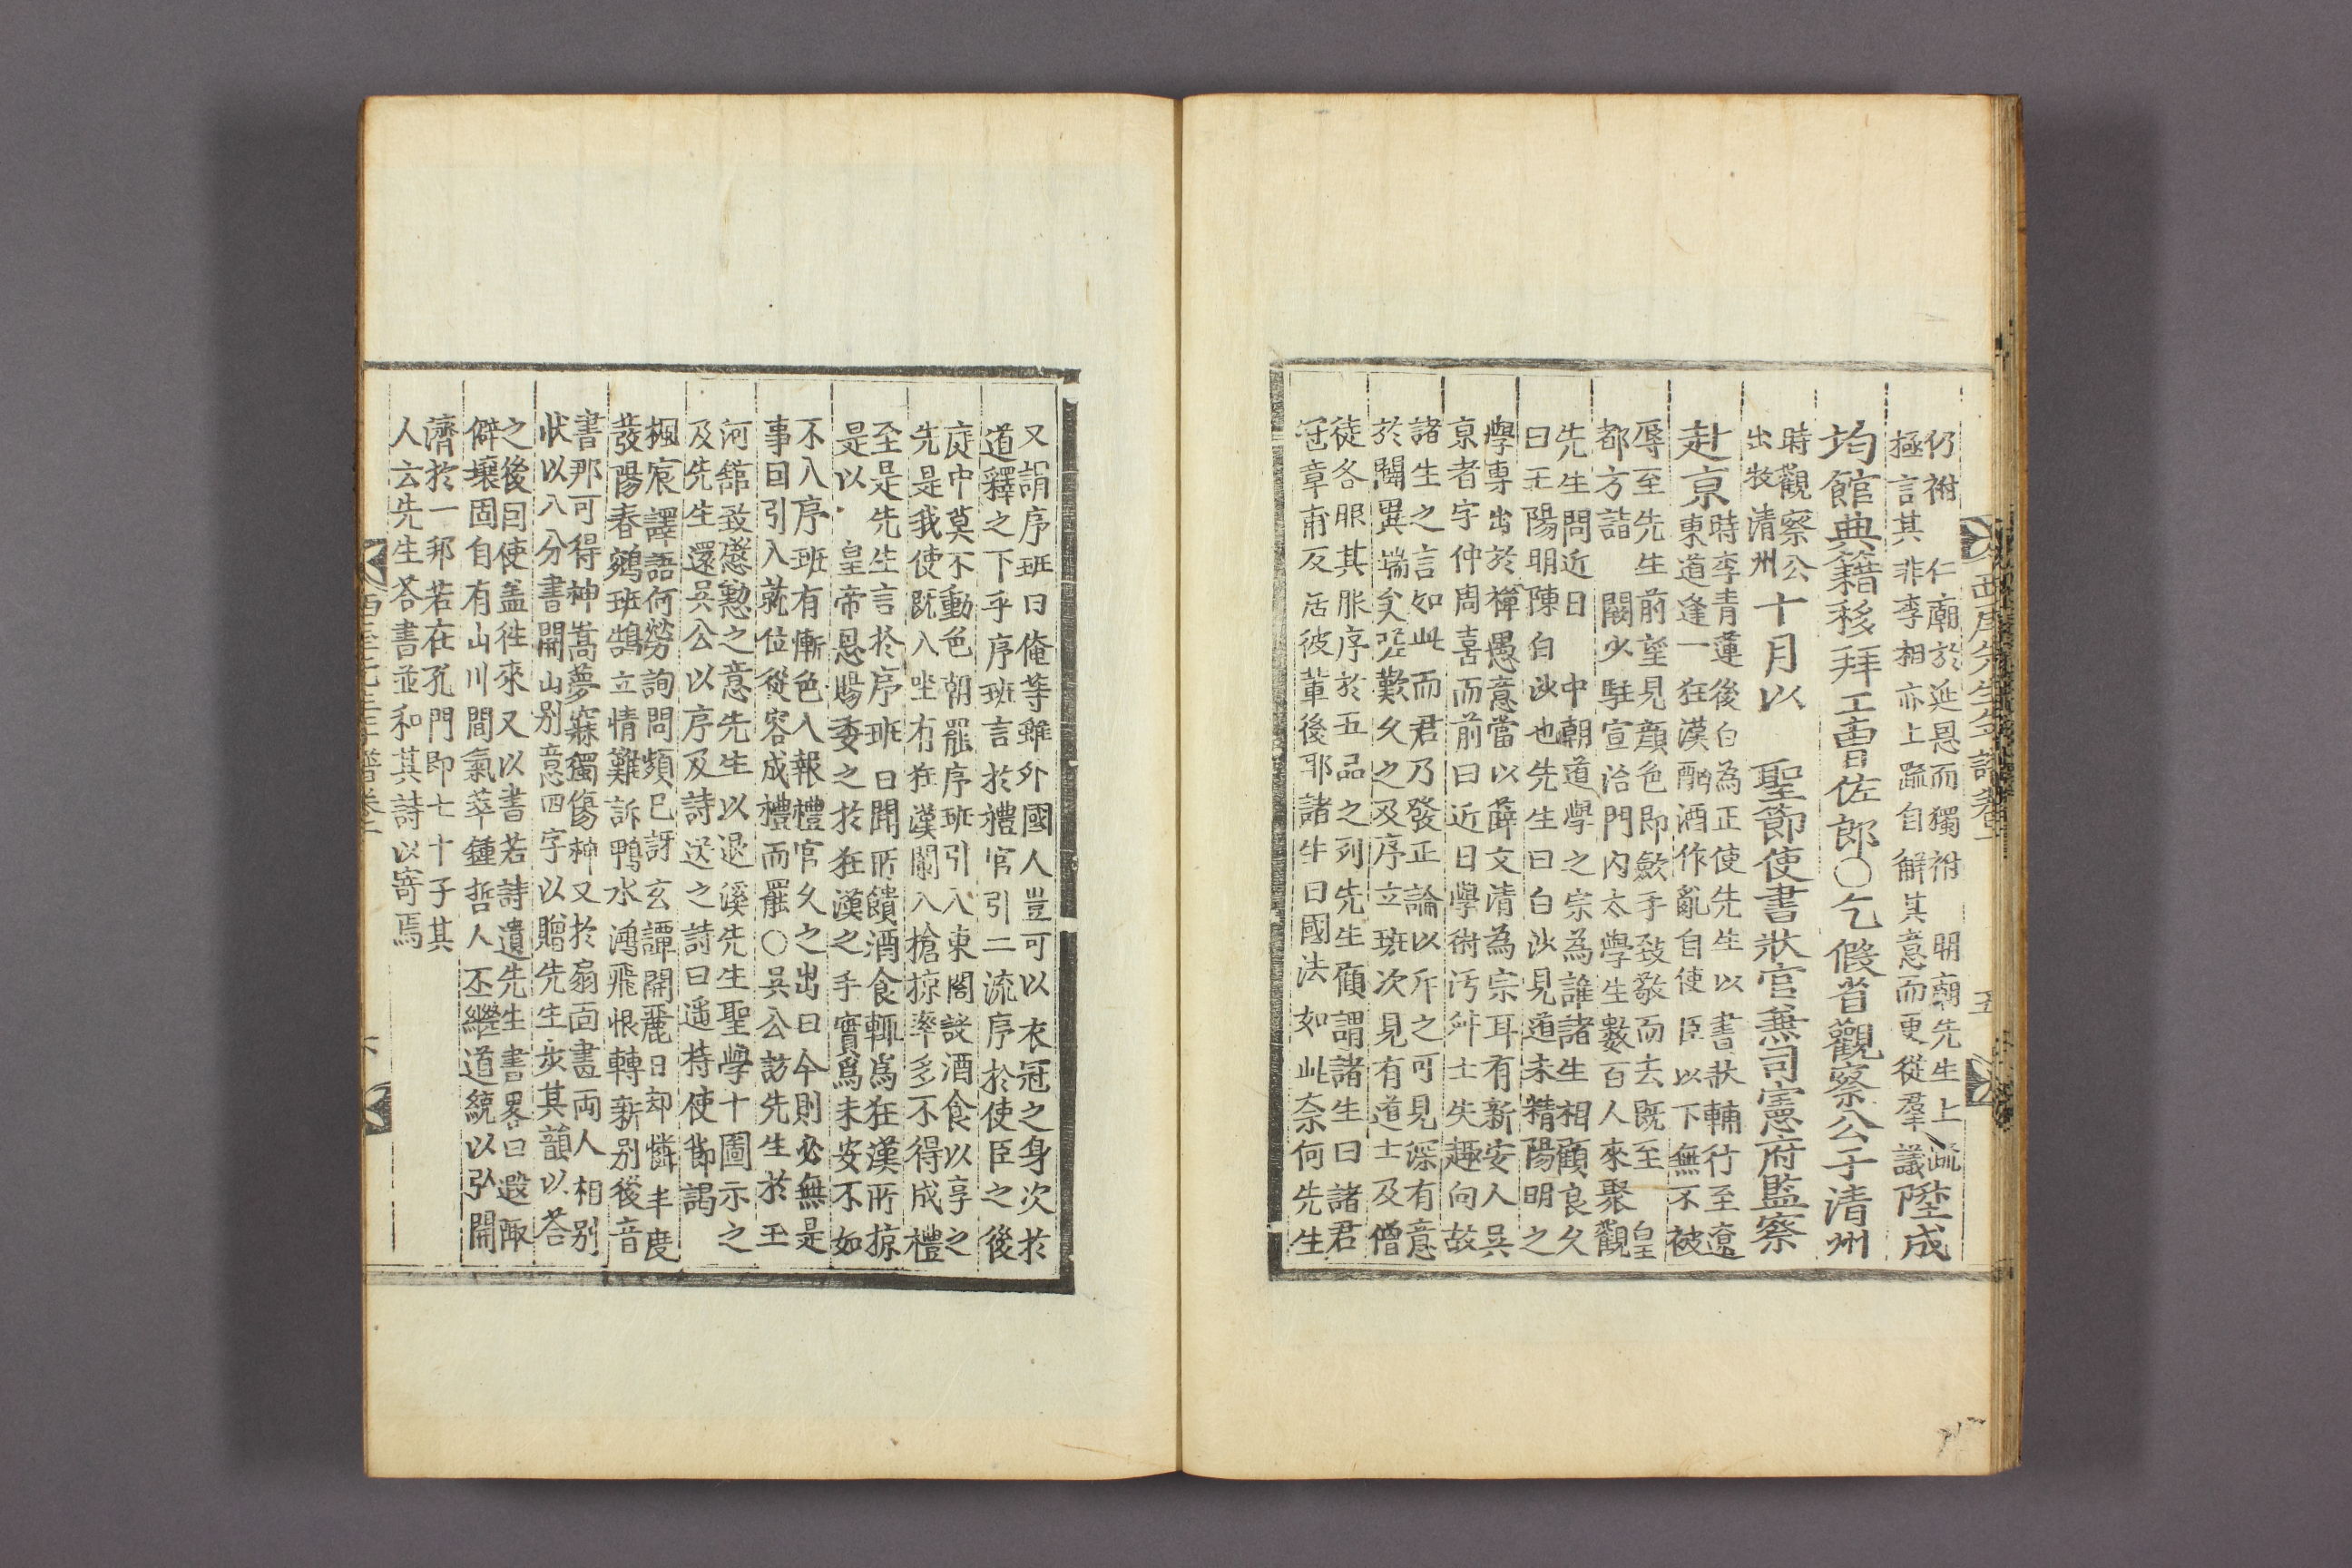 西厓先生年譜卷一
五
仍祔 仁廟於延恩而獨祔 明廟先生上疏
極言其非李相亦上䟽自解其意而更從羣議陞成
均館典籍移拜工曹佐郎○乞假省觀察公于淸州
時觀察公
出牧清州
十月以 聖節使書狀官兼司憲府監察
赴京
時李青蓮後白為正使先生以書狀輔行至遼
東道逢一狂漢酗酒作亂自使臣以下無不被
辱至先生前望見顔色即斂手致敬而去既至 皇
都方詣 闕少駐宣治門內太學生數百人來聚觀
先生問近日 中朝道學之宗為誰諸生相顧良久
曰王陽明陳白沙也先生曰白沙見道未精陽明之
學專出於禪愚意當以薛文淸為宗耳有新安人吳
京者字仲周喜而前曰近日學術汚舛士失趣向故
諸生之言如此而君乃發正論以斥之可見深有意
於闢異端矣嗟歎久之及序立班次見有道士及僧
徒各服其服序於五品之列先生顧謂諸生曰諸君
冠章甫反居彼輩後耶諸生曰國法如此奈何先生
又謂序班曰俺等雖外國人豈可以衣冠之身次於
道釋之下乎序班言於禮官引二流序於使臣之後
庭中莫不動色朝罷序班引入東閣設酒食以享之
先是我使旣入坐有狂漢闌入搶掠率多不得成禮
至是先生言於序班曰聞所饋酒食輒爲狂漢所掠
是以 皇帝恩賜委之於狂漢之手實爲未安不如
不入序班有慚色入報禮官久之出曰今則必無是
事因引入就位從容成禮而罷○吳公訪先生於玉
河舘致慇懃之意先生以退溪先生聖學十圖示之
及先生還吳公以序及詩送之詩曰遥持使節謁
楓宸譯語何勞詢問頻已訝玄譚開麗日却憐丰度
發陽春鵷班鵠立情難訴鴨水鴻飛恨轉新别後音
書那可得神嵩夢寐獨傷神又於扇面畫兩人相别
狀以八分書開山别意四字以贈先生先生亦依其韻以荅
之後因使盖徃來又以書若詩遺先生書畧曰遐陬
僻壤固自有山川間氣萃鍾哲人丕繼道統以弘開
濟於一邦若在孔門即七十子其
人云先生荅書並和其詩以寄焉
西厓先生年譜卷一
六